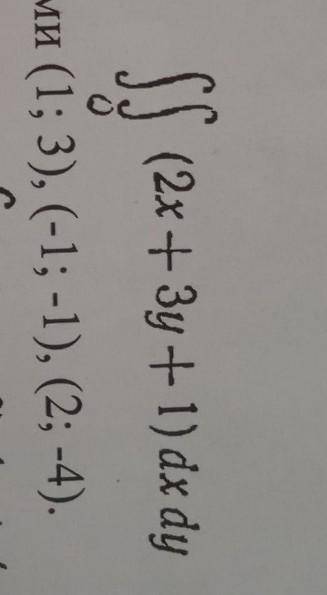 ∬ (2x + 3y + 1) dx dy
ми (1; 3), (-1; -1), (2; -4).